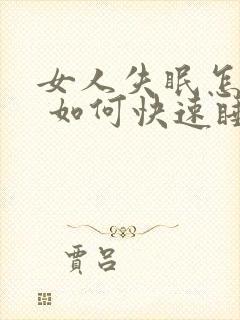 女人失眠怎
如何快速睡
贾吕